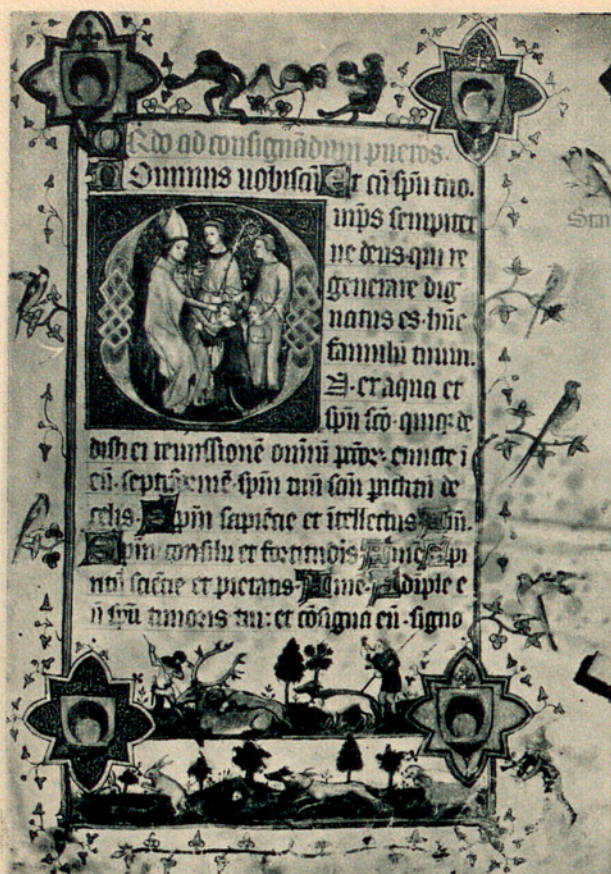 Ordo ad consignādum pueros.
Dominus uobiscū Et cū spū tuo.
mp̄s sempiter
ne deus qui re
generare dig
natus es hūc
famulū tuum.
Ex aqua et
spū sc̄o quiq; de
disti ei remissionē omniū
eū septiformē spm̄ tuū de
celis. Spm̄ sapiēcie et ītellectus
Spm̄ consilii et fortitudīs Amē Spm̄
sciēcie et pietatis Amē Adīple e
ū spū timoris tui et cōsigna eū signo